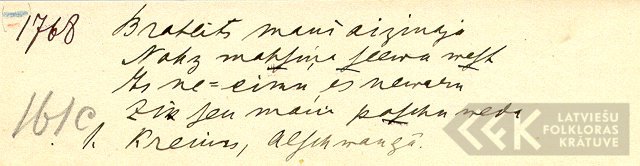 1768 Braleits mani aizinaja
Nahz mahsiņa seewu west
Es ne=eimu, es newaru
Zik sen mani paschu weda
161c
1. Kreews, Alschwangā.
LATVIEŠU
FOLKLORAS
KRĀTUVE